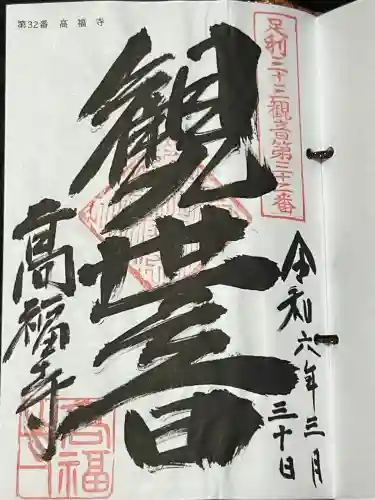 第32番 高 福 寺
足利三十三觀音第三十二番
令和六年三月
三十日
觀世音
髙福寺